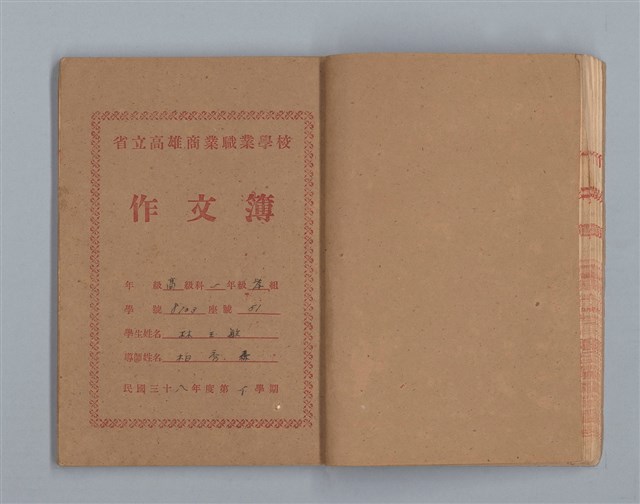 省立高雄商業職業學校
作文簿
年級高級科一年級 組
學號 座號 51
學生姓名 林
導師姓名
民國三十八年度第下學期